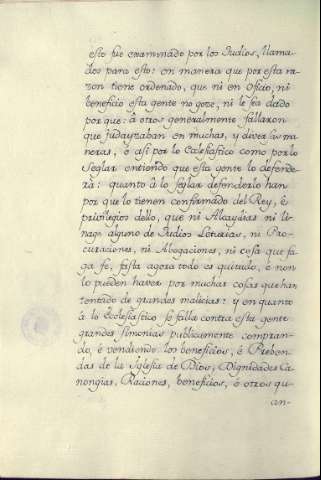 esto fue examinado por los Judios, llama-
dos para esto: en manera que por esta ra-
zon tiene ordenado, que ni en Oficio, ni
beneficio esta gente no goze, ni le sea dado
por que: à otros generalmente fallaron
que judayzaban en muchas, y diversas ma-
neras, è asi por lo Eclesiastico como por lo
Seglar entiendo que esta gente lo defende-
rà: quanto à lo seglar defenderlo han
por que lo tienen confirmado del Rey, è
privilegios dello, que ni Alcaydias ni li-
nage alguno de Judios Leturias, ni Pro-
curaciones, ni Abogaciones, ni cosa que fa-
ga fe, fasta agora todo es quitado, è non
lo pueden haver por muchas cosas que han
tentado de grandes malicias: y en quanto
à lo Ecclesiastico se falla contra esta gente
grandes simonias publicamente compran-
do, è vendiendo los beneficios, è Preben-
das de la Iglesia de Dios, Dignidades Ca-
nongias, Raciones, beneficios, è otros qu-
an-